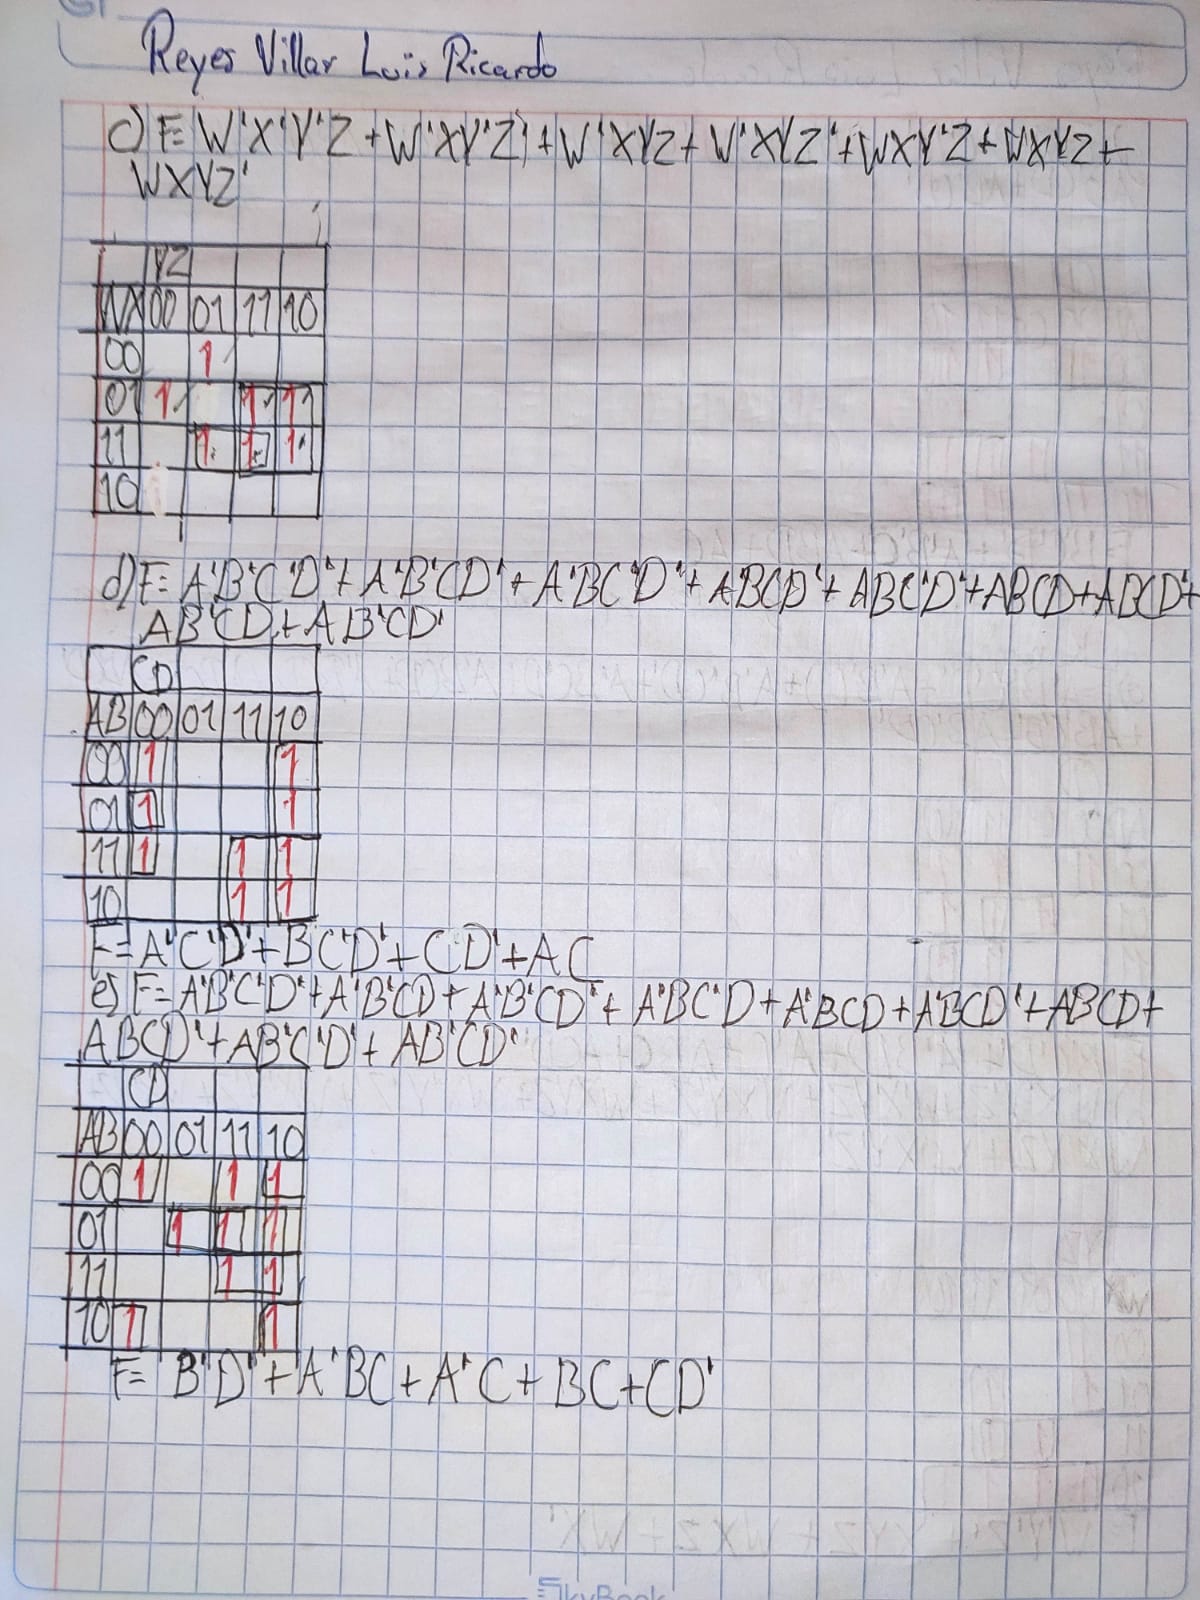 Reyes Villar Luis Ricardo
c) F= W'X'Y'Z + W'XY'Z' + W'XYZ + W'XYZ' + WXY'Z + WXYZ +
WXYZ'
YZ
WX 00 01 11 10
00 1
01 1 1 1
11 1 1 1
10
d) F= A'B'C'D' + A'B'CD' + A'BC'D' + A'BCD' + ABC'D' + ABCD + ABCD' +
AB'CD + AB'CD'
CD
AB 00 01 11 10
00 1 1
01 1 1
11 1 1 1
10 1 1
F= A'C'D' + BC'D' + CD' + AC
e) F= A'B'C'D' + A'B'CD + A'B'CD' + A'BC'D + A'BCD + A'BCD' + ABCD +
ABCD' + AB'C'D' + AB'CD'
CD
AB 00 01 11 10
00 1 1 1
01 1 1 1
11 1 1
10 1 1
F= B'D' + A'BC + A'C + BC + CD'
SkyBook